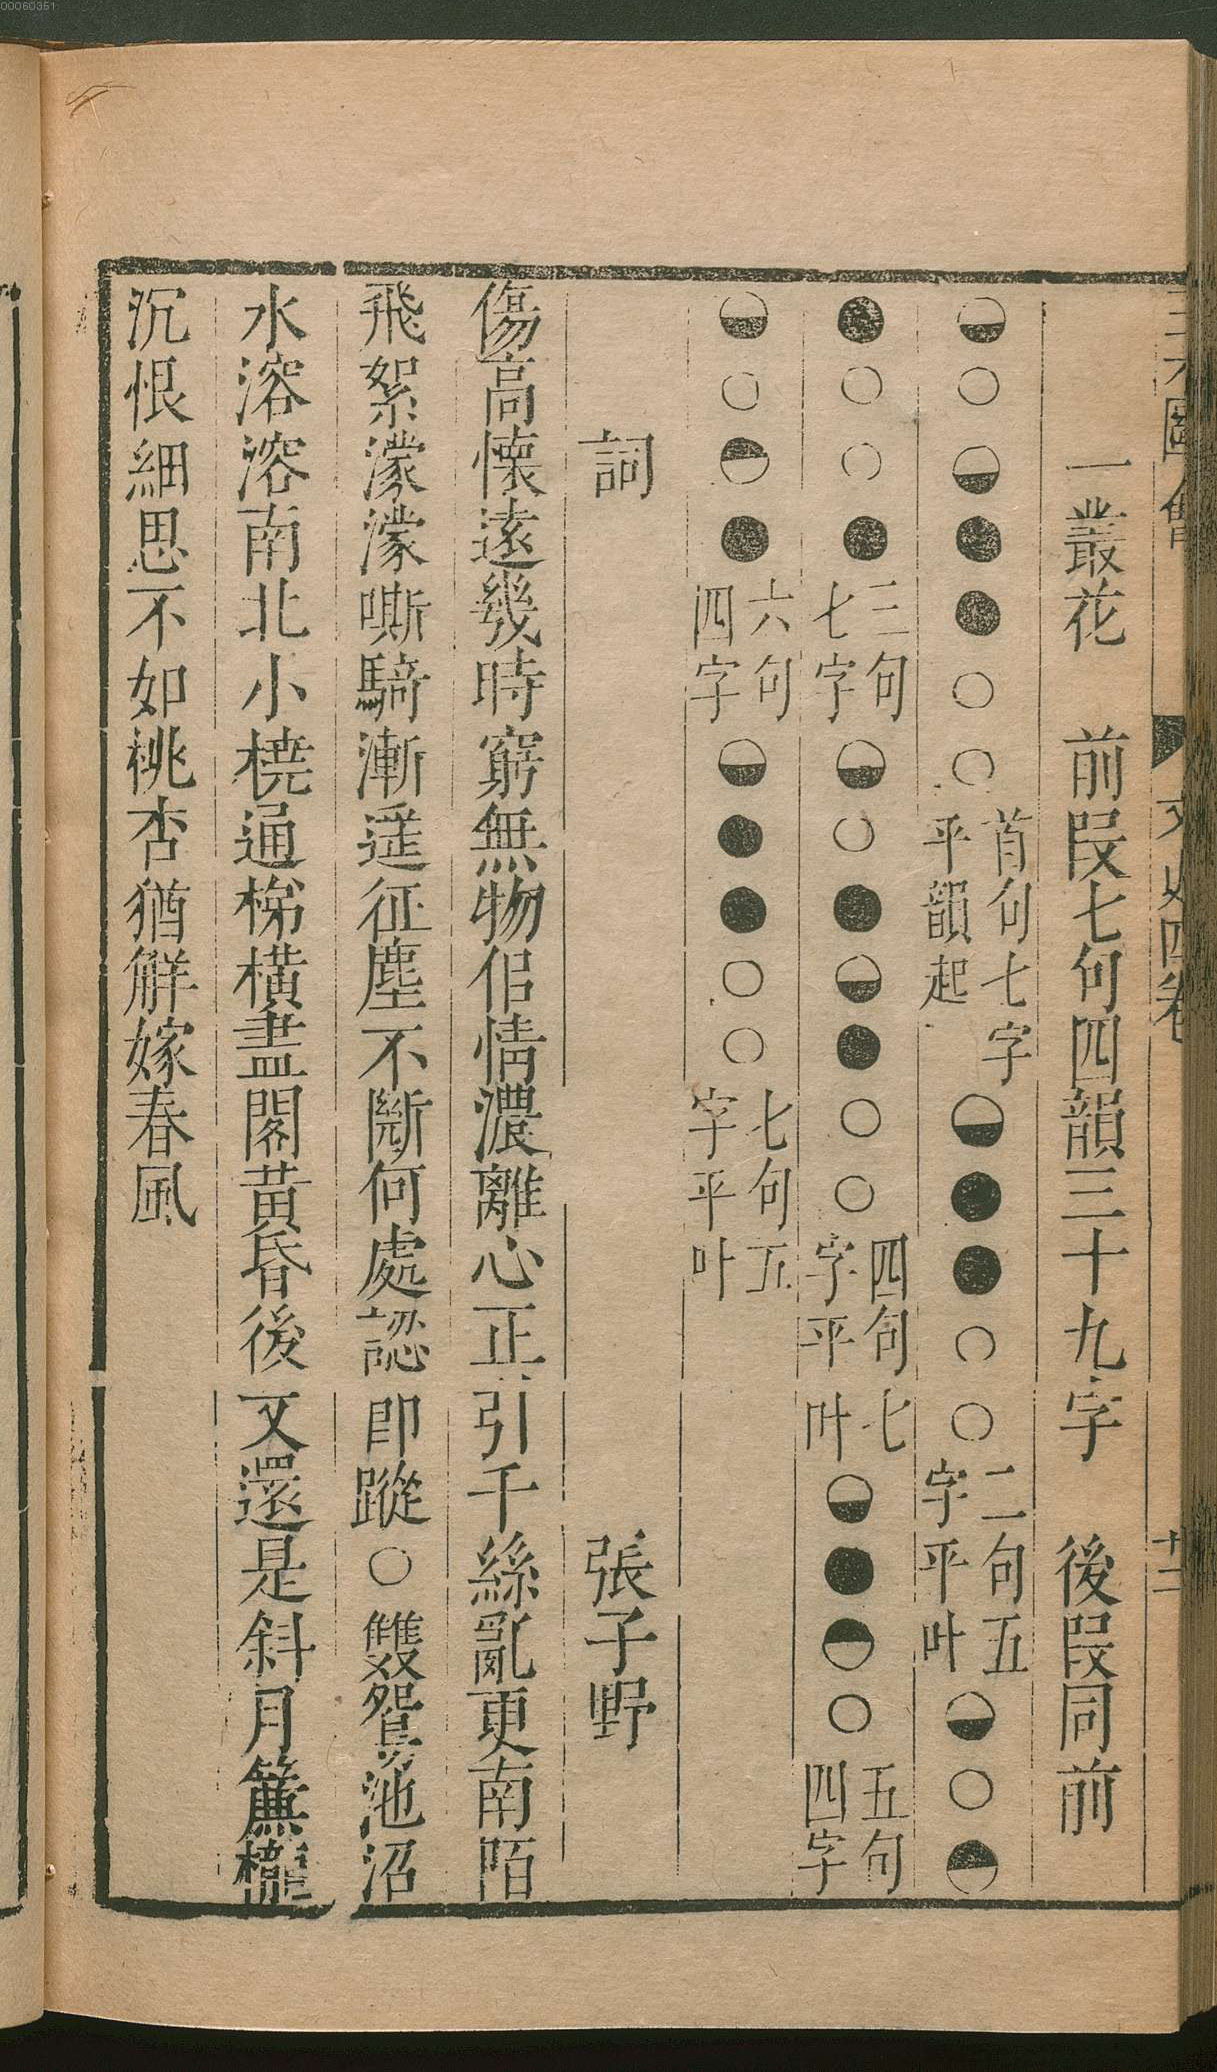 三才圖會 文史四卷 十二
一叢花 前段七句四韻三十九字 後段同前
◒○◒●●○○首句七字平韻起◒●●○○二句五字平叶◒○◓
●○○●三句七字◒○●◒●○○四句七字平叶◒●◓○五句四字
◒○◓●六句四字◒●●○○七句五字平叶
詞 張子野
傷高懷遠幾時窮無物佀情濃離心正引千絲亂更南陌
飛絮濛濛嘶騎漸遥征塵不斷何處認即蹤○雙鴛池沼
水溶溶南北小橈通梯橫畫閣黃昏後又還是斜月簾櫳
沉恨細思不如桃杏猶解嫁春風
00060351